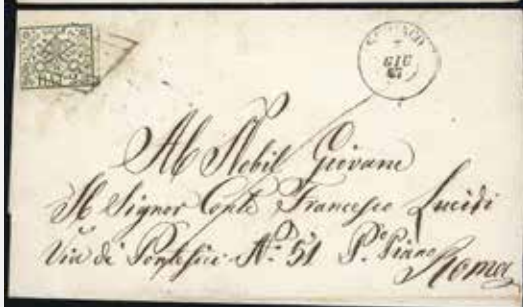 GIU
67
Al Nobil Giovane
Il Signor Conte Francesco Lucidi
Via de Pontefici N.º 51 P.º Piano
Roma